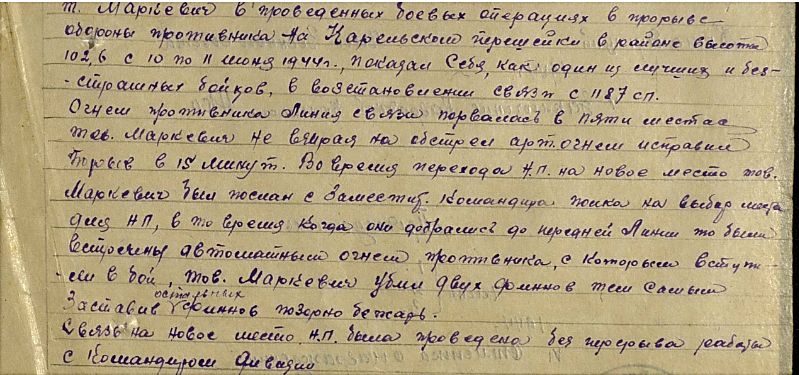 т. Маркевич в проведенных боевых операциях в прорыве
обороны противника на Карельском перешейке в районе высоты
102,6 с 10 по 11 июня 1944г., показал себя, как один из лучших и без-
-страшных бойцов, в возстановлении связи с 1187 сп.
Огнем противника линия связи порвалась в пяти местах
тов. Маркевич не взирая на обстрел арт. огнем исправил
порыв в 15 минут. Во время перехода Н.П. на новое место тов.
Маркевич был послан с заместит. командира полка на выбор места
для НП, в то время когда они добрались до передней линии то были
встречены автоматным огнем противника, с которым вступи-
-ли в бой, тов. Маркевич убил двух финнов тем самым
заставив остальных финнов позорно бежать.
Связь на новое место Н.П. была проведена без перерыва работы
с командиром дивизии